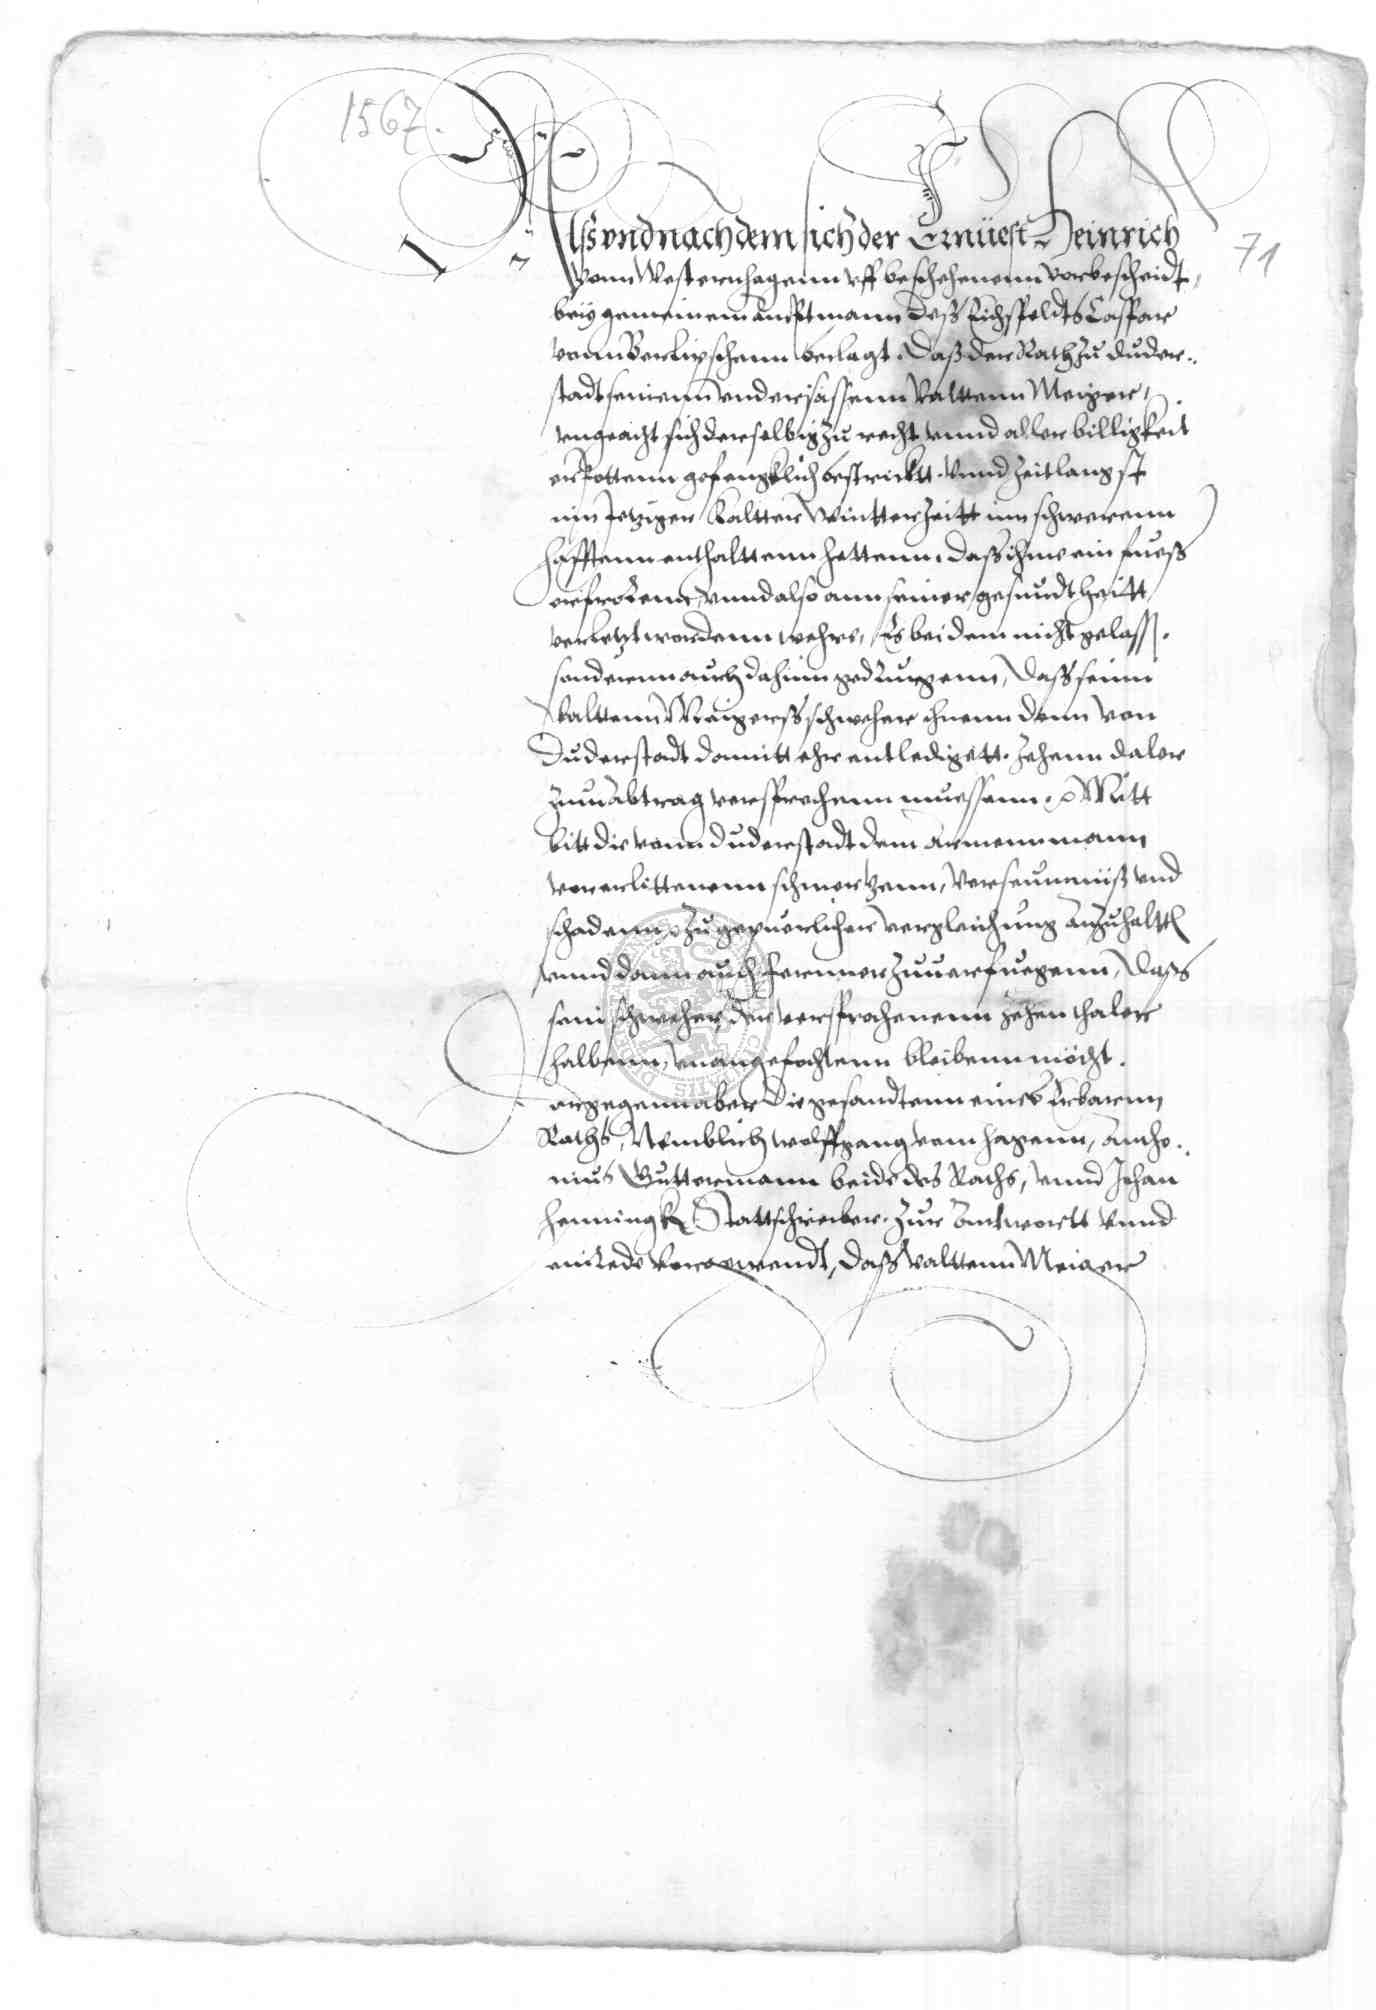 1567.
71
Alß vnd nach dem sich der Ernuest Heinrich
vonn Westernhagenn vff beschehenenn vorbescheidt,
beÿ gemeinem Amptmann deß Eichßfeldts Caspar
vonn Berlipschenn beclagt. Daß der Rath zu Duder..
stadt seinenn vndersassenn Valttenn Meiger,
vngeacht sich derselbig zu recht vnnd aller billigkeit
erpottenn gefengklich bestricktt. Vnnd Zeitlangst
inn jetziger kaltter Wintterzeitt inn schwerenn
hafftenn enthalttenn hettenn. Daß ihme ein fueß
erfrorenn, vnnd also ann seiner gesundtheitt
verletzt wordenn wehre, Es bei dem nicht gelass.
sonderenn auch dahinn gedrungenn, Daß seinn
Valttenn Meigerß schweher ihnenn denn von
Duderstadt damitt ehr entledigett. Zehenn daler
zum Abtrag versprechenn muessenn. Mitt
bitt die vonn Duderstadt dem Armennmann
vor erlittenenn schmertzenn, Verseumnüß vnd
schadenn, zu gepuerlicher vergleichung Anzuhalttn
vnnd dann auch ferrner zuuerfuegenn, Daß
sein schweher, der versprochenenn zehen thaler
halbenn, vnangefochtenn bleibenn möcht.
ergegenn aber Die gesandtenn eines Erbarenn
Raths, Nemblich Wolffgang vom Hagenn, Antho..
nius Guttermann beide des Raths, vnnd Johan
Henningk Stattschreiber. Zur Antwortt vnnd
einrede vorgewendt, Daß Valttenn Meiger